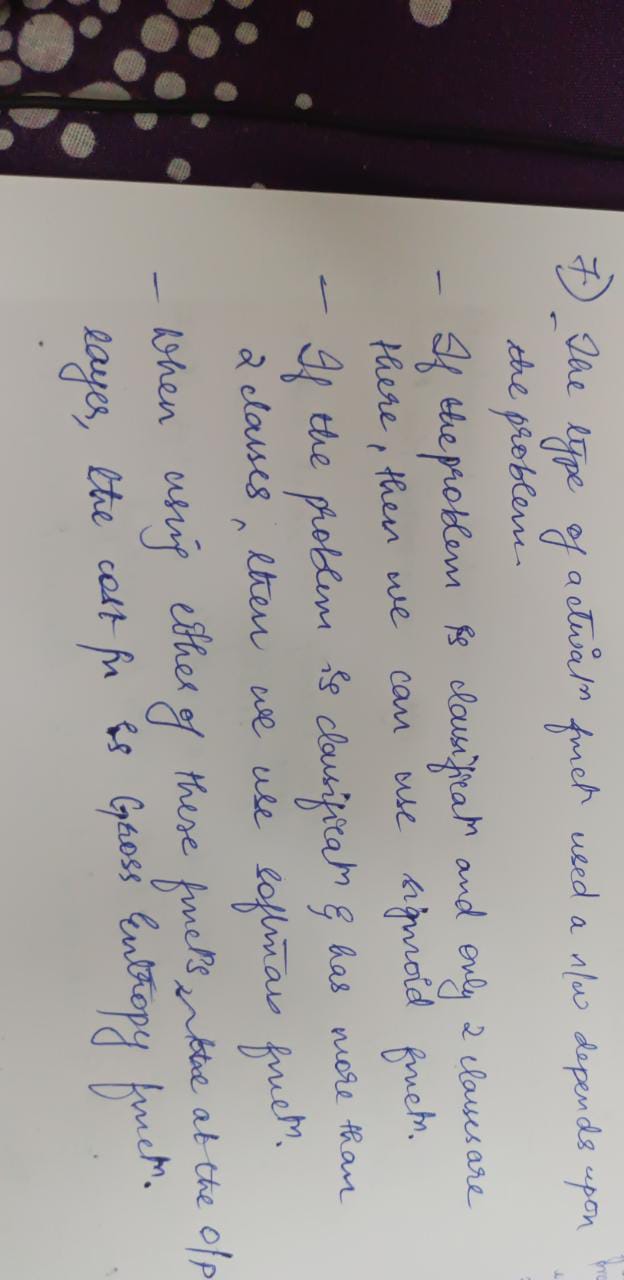 7) - The type of activatn funct used a n/w depends upon
the problem.
- If the problem is classificatn and only 2 classes are
there, then we can use sigmoid functn.
- If the problem is classificatn & has more than
2 classes, then we use softmax functn.
- When using either of these functs at the o/p
layer, the cost fn is Cross Entropy functn.